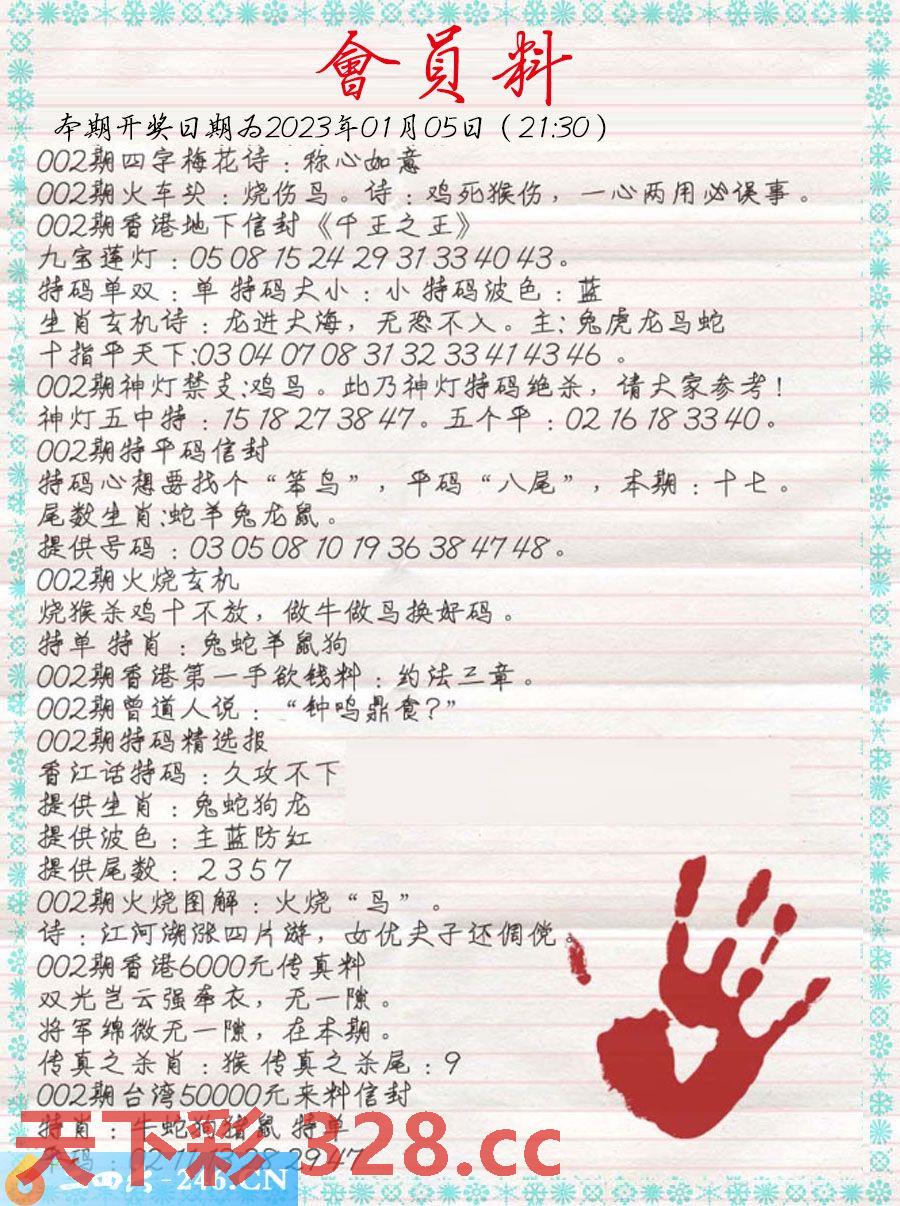 會員料
本期开奖日期为2023年01月05日（21:30）
002期四字梅花诗：称心如意
002期火车头：烧伤鸟。诗：鸡死猴伤，一心两用必误事。
002期香港地下信封《千王之王》
九宝莲灯：05 08 15 24 29 31 33 40 43。
特码单双：单 特码大小：小 特码波色：蓝
生肖玄机诗：龙进大海，无恐不入。主:兔虎龙马蛇
十指平天下:03 04 07 08 31 32 33 41 43 46 。
002期神灯禁支:鸡马。此乃神灯特码绝杀，请大家参考！
神灯五中特：15 18 27 38 47。五个平：02 16 18 33 40。
002期特平码信封
特码心想要找个“笨鸟”，平码“八尾”，本期：十七。
尾数生肖:蛇羊兔龙鼠。
提供号码：03 05 08 10 19 36 38 47 48。
002期火烧玄机
烧猴杀鸡十不放，做牛做马换好码。
特单 特肖：兔蛇羊鼠狗
002期香港第一手欲钱料：约法三章。
002期曾道人说：“钟鸣鼎食?”
002期特码精选报
香江话特码：久攻不下
提供生肖：兔蛇狗龙
提供波色：主蓝防红
提供尾数：2 3 5 7
002期火烧图解：火烧“鸟”。
诗：江河潮涨四片游，女优夫子还倜傥。
002期香港6000元传真料
双光岂云强牵衣，无一隙。
将军绵微无一隙，在本期。
传真之杀肖：猴 传真之杀尾：9
002期台湾50000元来料信封
特肖：牛蛇狗猪鼠 特单
天下彩 328.cc
29 47
-246.CN